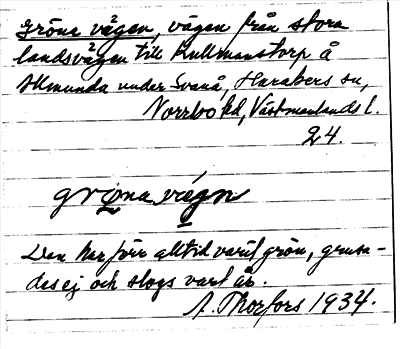 Gröna vägen, vägen från stora
landsvägen till Kullmanstorp å
Almunda under Svanå, Haraker sn,
Norrbo hd, Västmanlands l.
24.
grøna vægn
Den har förr alltid varit grön, grusa-
des ej och slogs vart år.
A. Thorfors 1934.